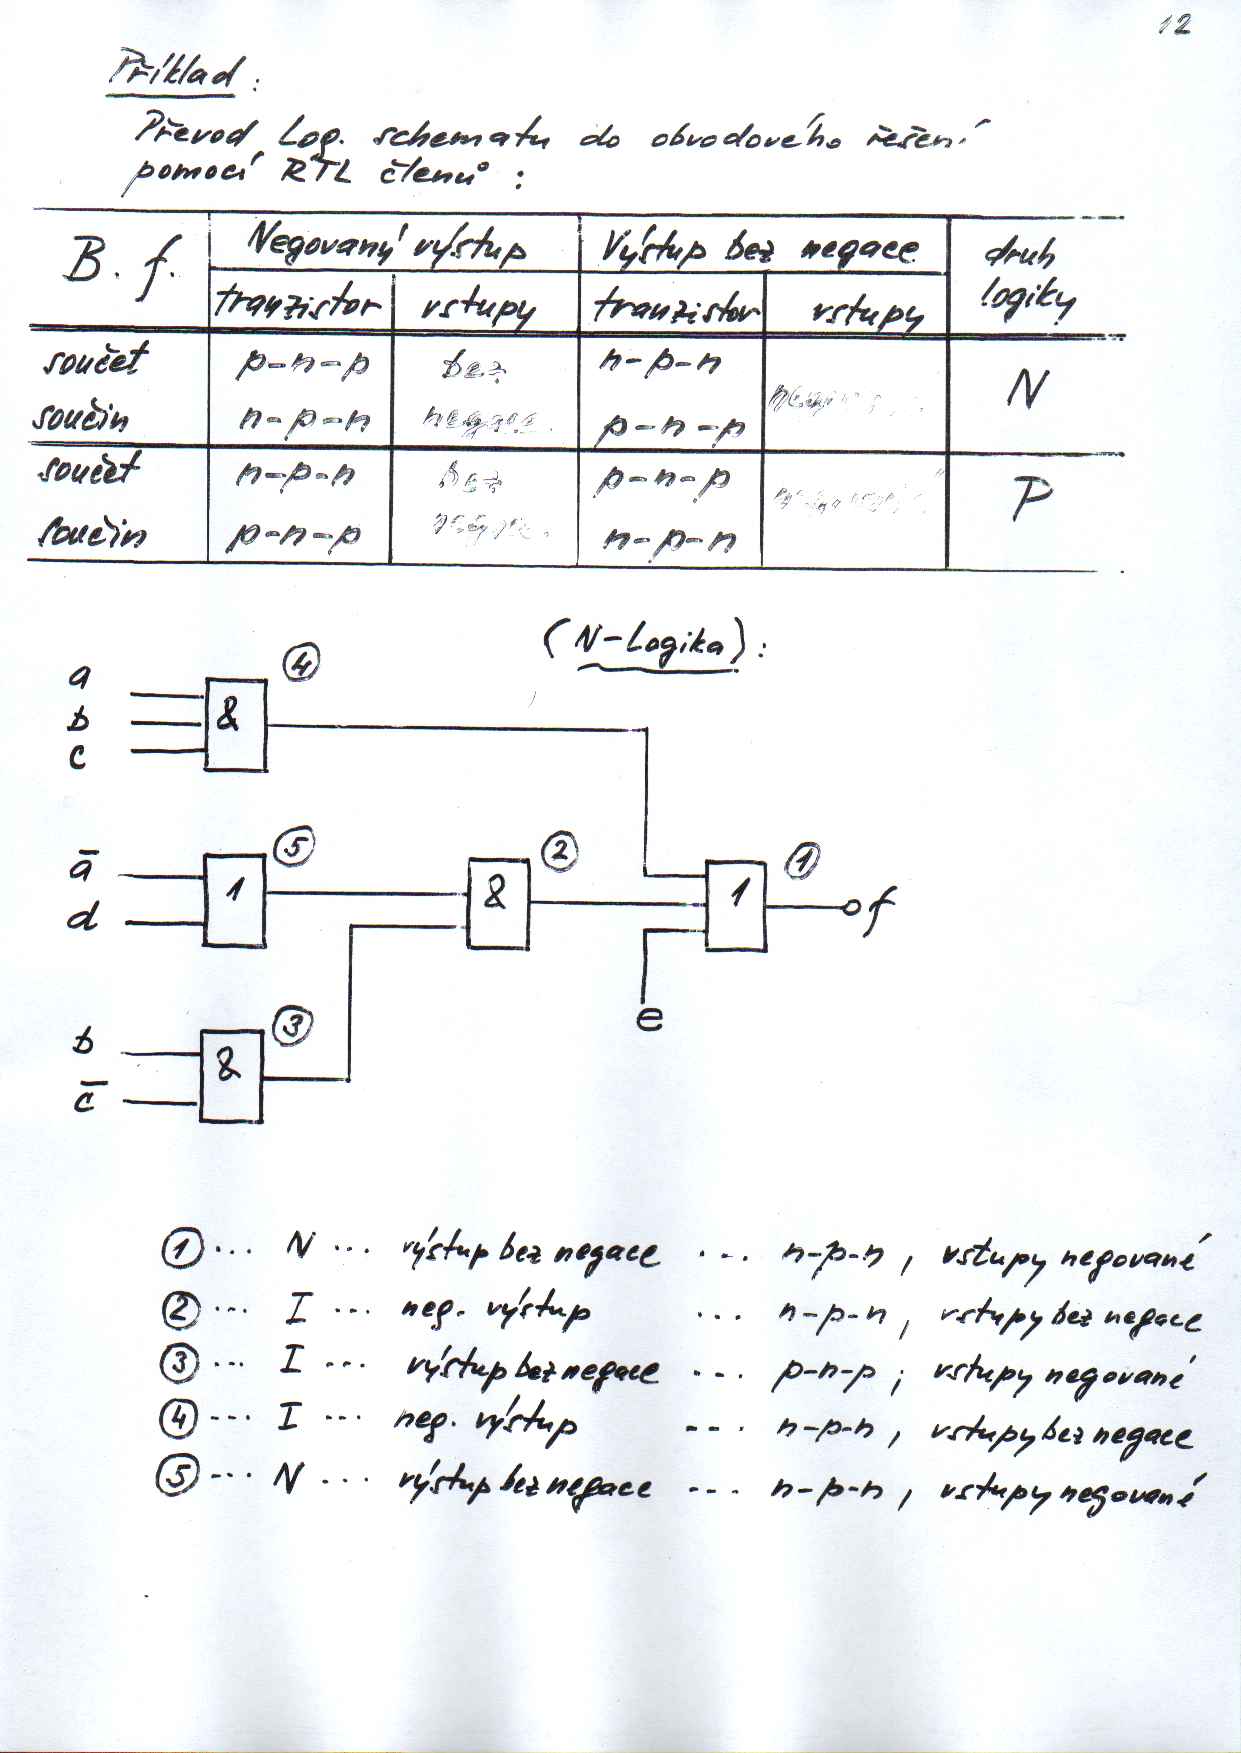 12
Příklad :
Převod Log. schematu do obvodového řešení
pomocí RTL členů :
B. f. Negovaný výstup Výstup bez negace druh logiky
tranzistor vstupy tranzistor vstupy
součet p-n-p bez n-p-n
součin n-p-n negace p-n-p N
součet n-p-n bez p-n-p
součin p-n-p n-p-n P
(N-Logika) :
a
b
c
& 4
ā
d
1 5
& 2
1 1
f
e
b
c̄
& 3
1 ... N ... výstup bez negace ... n-p-n , vstupy negované
2 ... I ... neg. výstup ... n-p-n , vstupy bez negace
3 ... I ... výstup bez negace ... p-n-p ; vstupy negované
4 ... I ... neg. výstup ... n-p-n , vstupy bez negace
5 ... N ... výstup bez negace ... n-p-n , vstupy negované